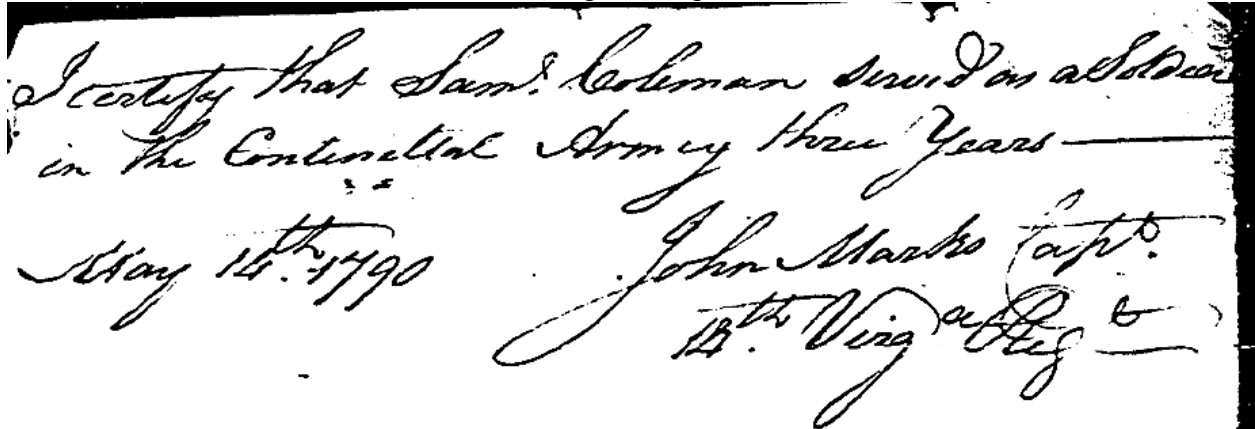 I certify that Sam.l Coleman serv'd as a Soldier
in the Continettal Army three Years —
May 14th. 1790 John Marks Capt.
14th. Virga Regt